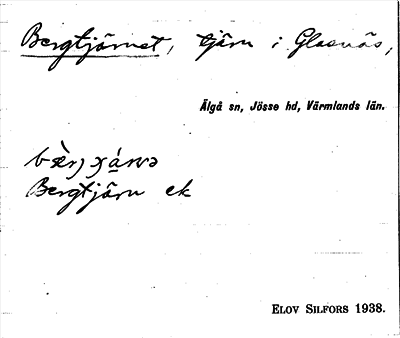 Bergtjärnet, tjärn i Glasnäs,
Älgå sn, Jösse hd, Värmlands län.
Bergtjärn ek
ELOV SILFORS 1938.